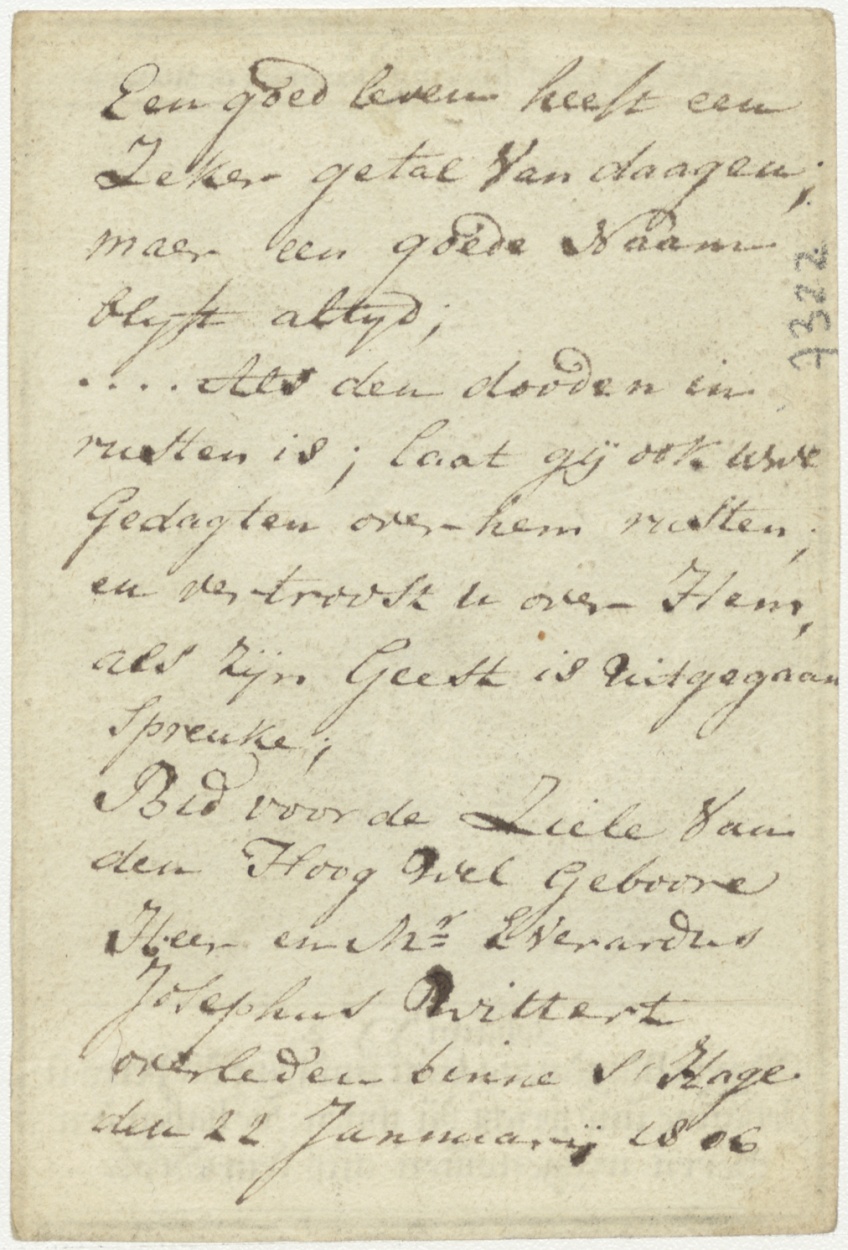 Een goed leven heeft een
Zeker getal Van daagen;
maer een goede Naam
blyft altyd;
.... Als den dooden in
rusten is; laat gij ook uwe
Gedagten over hem rusten;
en vertroost u over Hem,
als zijn Geest is uitgegaan
Spreuke;
Bid voor de Ziele Van
den Hoog Wel Geboore
Heer en Mr Everardus
Josephus Wittert
overleden binne S'Hage
den 22 Jannuarij 1806
7322